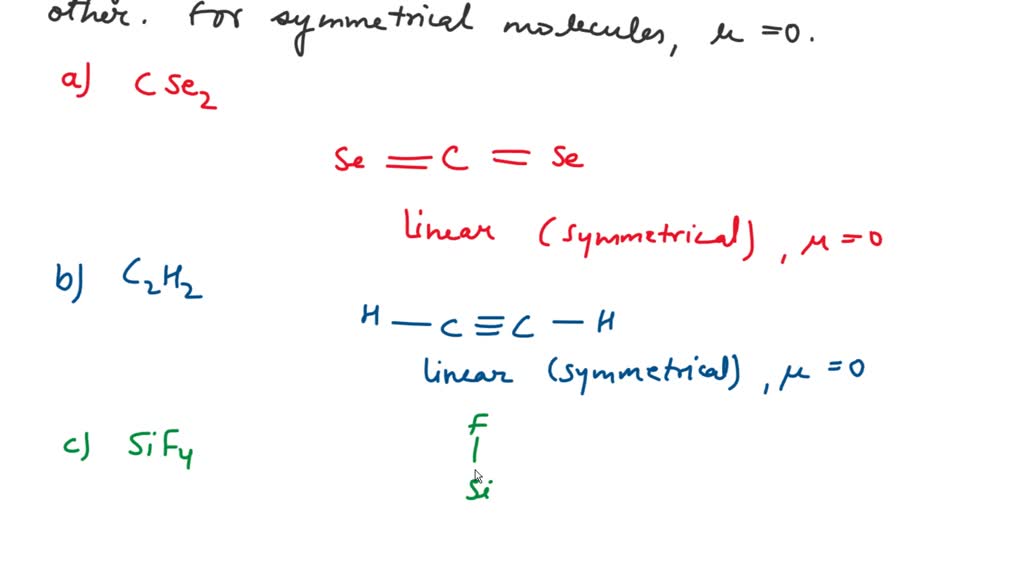 other. For symmetrical molecules, μ =0.
a) CSe₂
Se = C = Se
linear (symmetrical), μ = 0
b) C₂H₂
H — C ≡ C — H
linear (symmetrical), μ = 0
c) SiF₄
F
|
Si